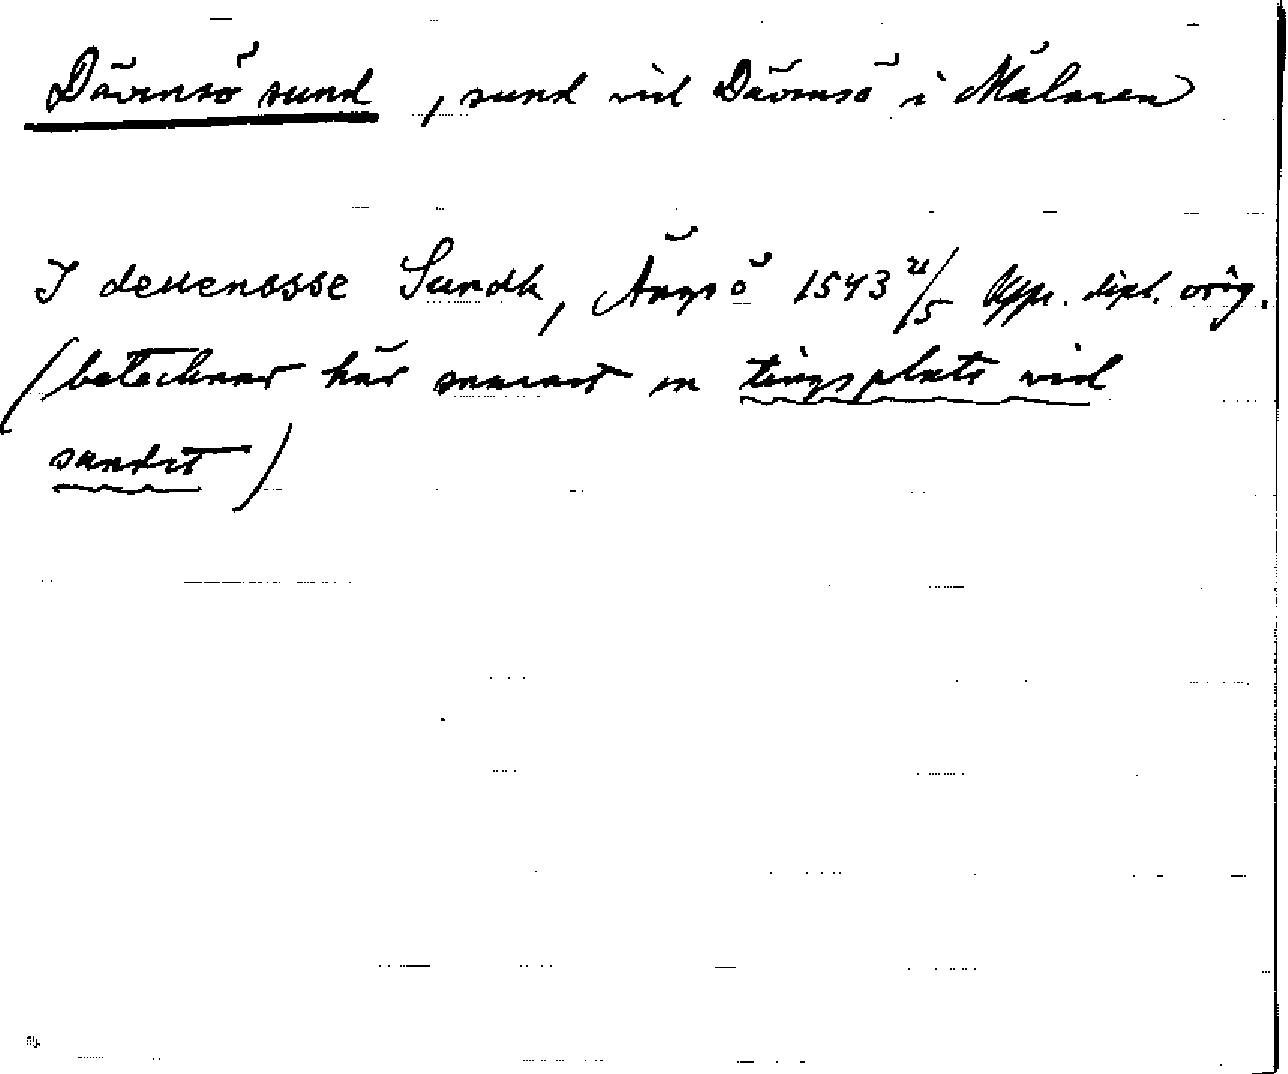 Dävensö sund, sund vid Dävensö i Mälaren
I devenosse Sundh, Ängsö 1543 21/5 Upp. dipl. orig.
(betecknar här snarast en tingsplats vid
sundet)